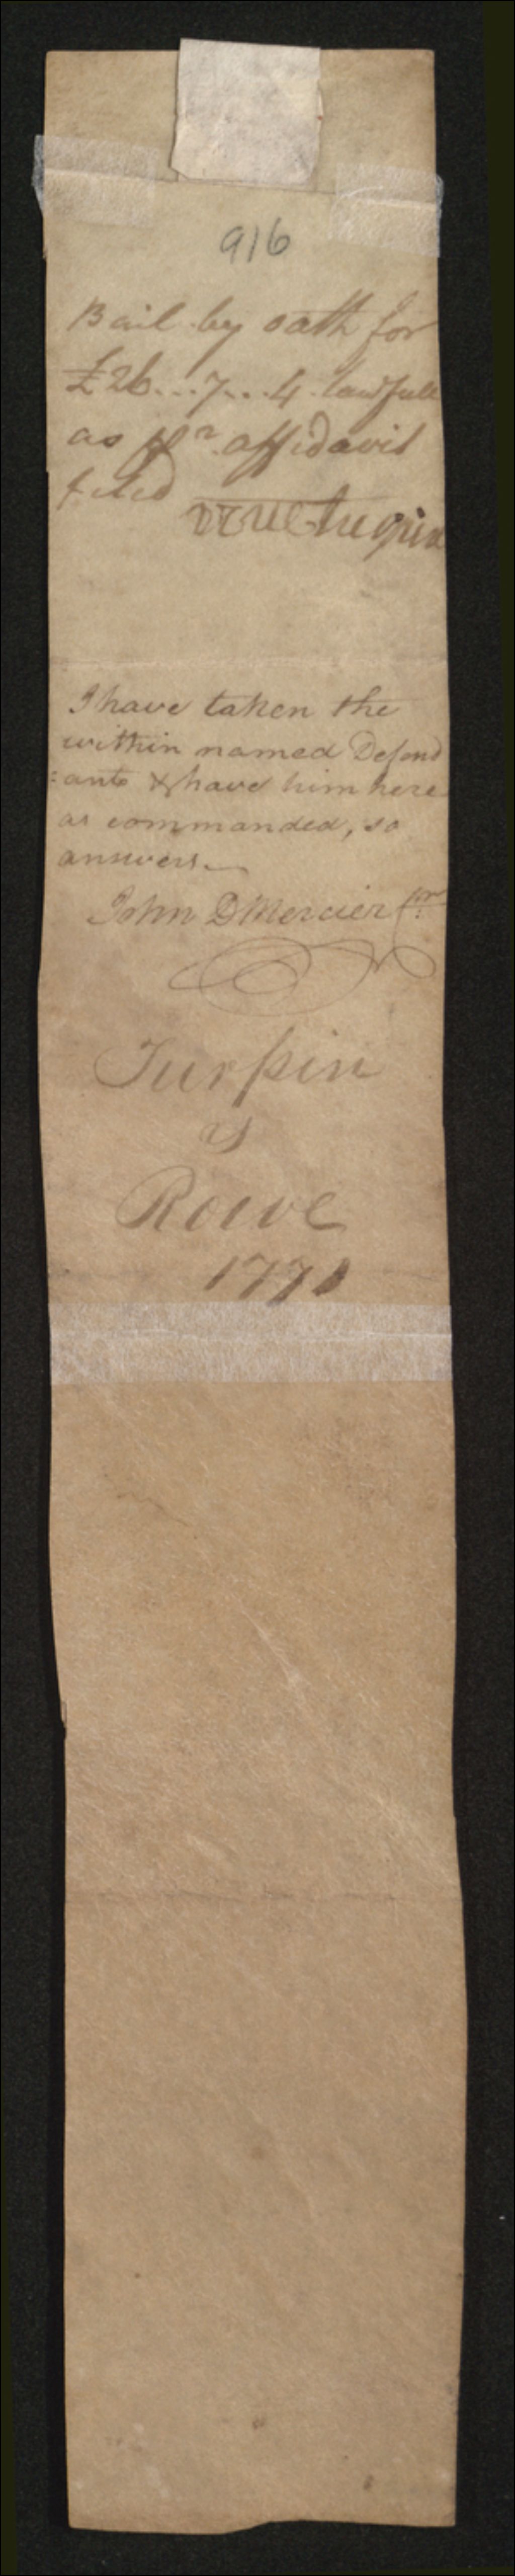 916
Bail by oath for
£26...7...4 lawfull
as pr. affidavit
filed
I have taken the
within named Defend
=ants & have him here
as commanded, so
answers
John D Mercier
Turpin
vs
Rowe
1771